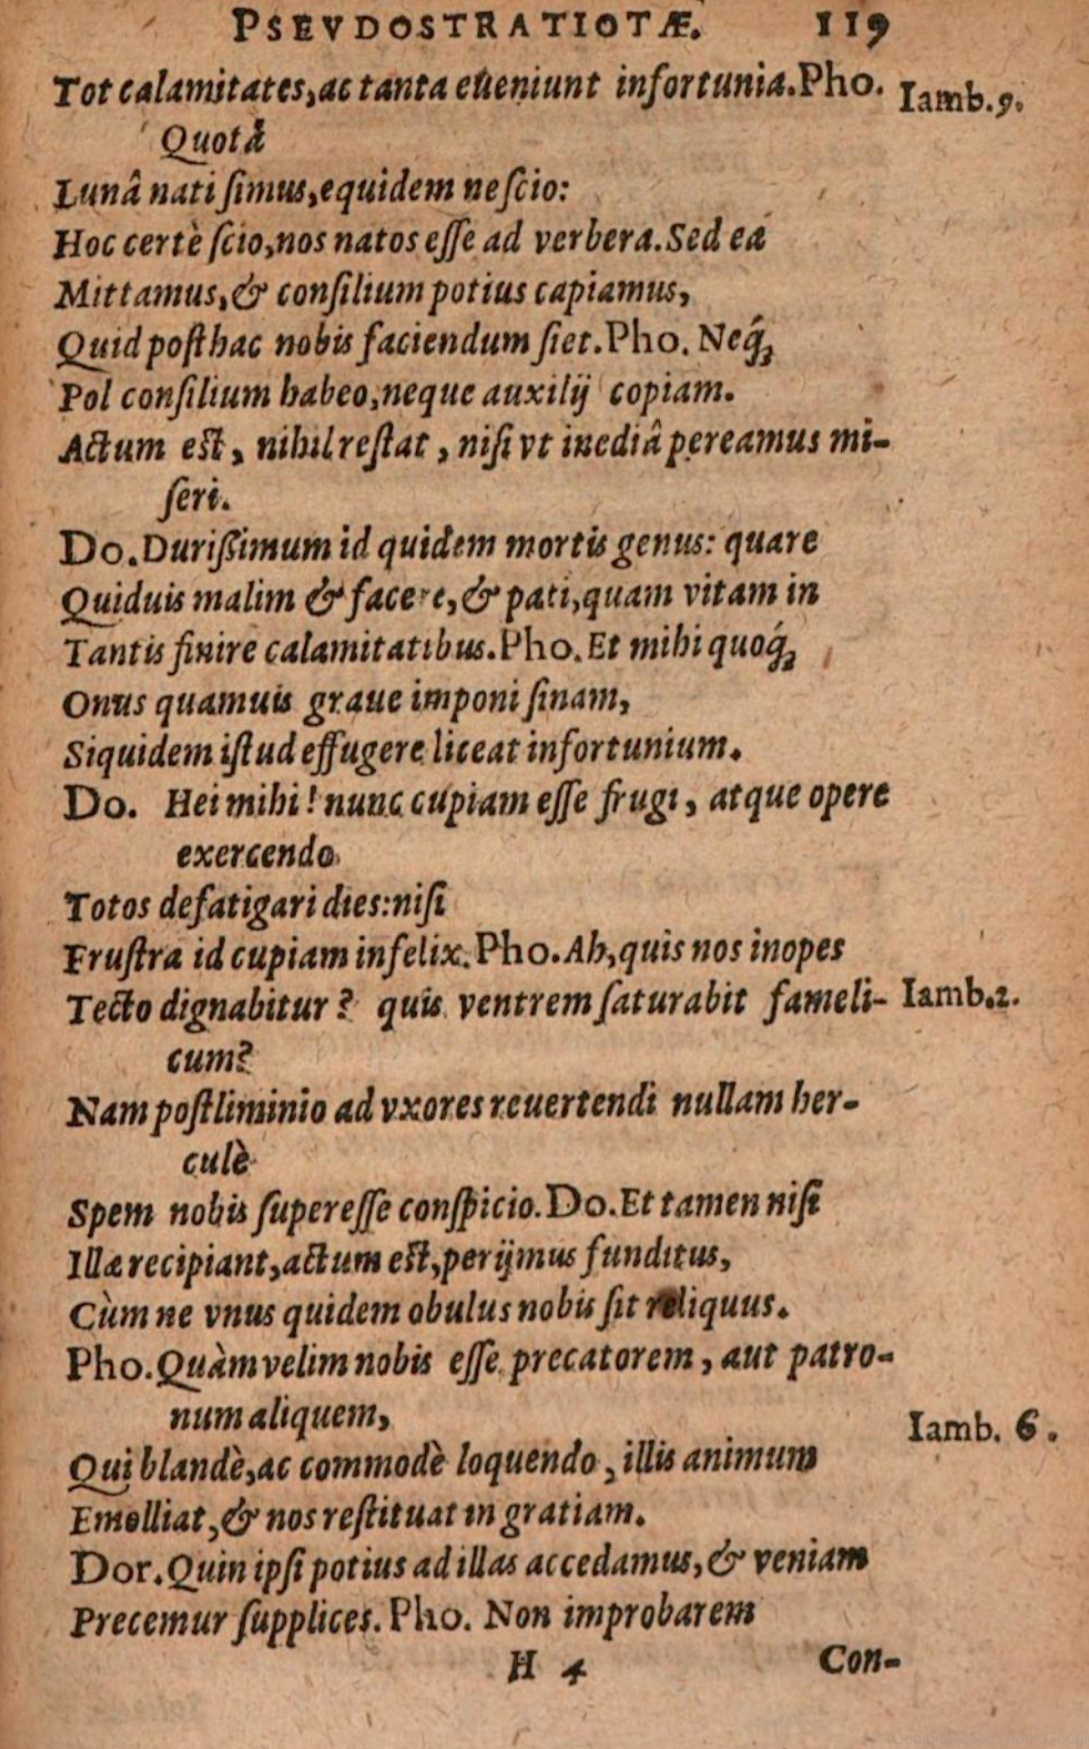 PSEVDOSTRATIOTÆ. 119
Tot calamitates, ac tanta eueniunt infortunia. Pho. Iamb. 9.
Quotâ
Lunâ nati ſimus, equidem neſcio:
Hoc certè ſcio, nos natos eſſe ad verbera. Sed ea
Mittamus, & conſilium potius capiamus,
Quid poſthac nobis faciendum ſiet. Pho. Neq́;
Pol conſilium habeo, neque auxilij copiam.
Actum eſt, nihil reſtat, niſi vt inediâ pereamus mi-
ſeri.
Do. Duriſſimum id quidem mortis genus: quare
Quiduis malim & facere, & pati, quam vitam in
Tantis finire calamitatibus. Pho. Et mihi quoq́;
Onus quamuis graue imponi ſinam,
Siquidem iſtud effugere liceat infortunium.
Do. Hei mihi! nunc cupiam eſſe frugi, atque opere
exercendo
Totos defatigari dies: niſi
Fruſtra id cupiam infelix. Pho. Ah, quis nos inopes
Tecto dignabitur? quis ventrem ſaturabit fameli- Iamb. 2.
cum?
Nam poſtliminio ad vxores reuertendi nullam her-
culè
Spem nobis ſupereſſe conſpicio. Do. Et tamen niſi
Illæ recipiant, actum eſt, perijmus funditus,
Cùm ne vnus quidem obulus nobis ſit reliquus.
Pho. Quàm velim nobis eſſe precatorem, aut patro-
num aliquem,
Iamb. 6.
Qui blandè, ac commodè loquendo, illis animum
Emolliat, & nos reſtituat in gratiam.
Dor. Quin ipſi potius ad illas accedamus, & veniam
Precemur ſupplices. Pho. Non improbarem
H 4 Con-